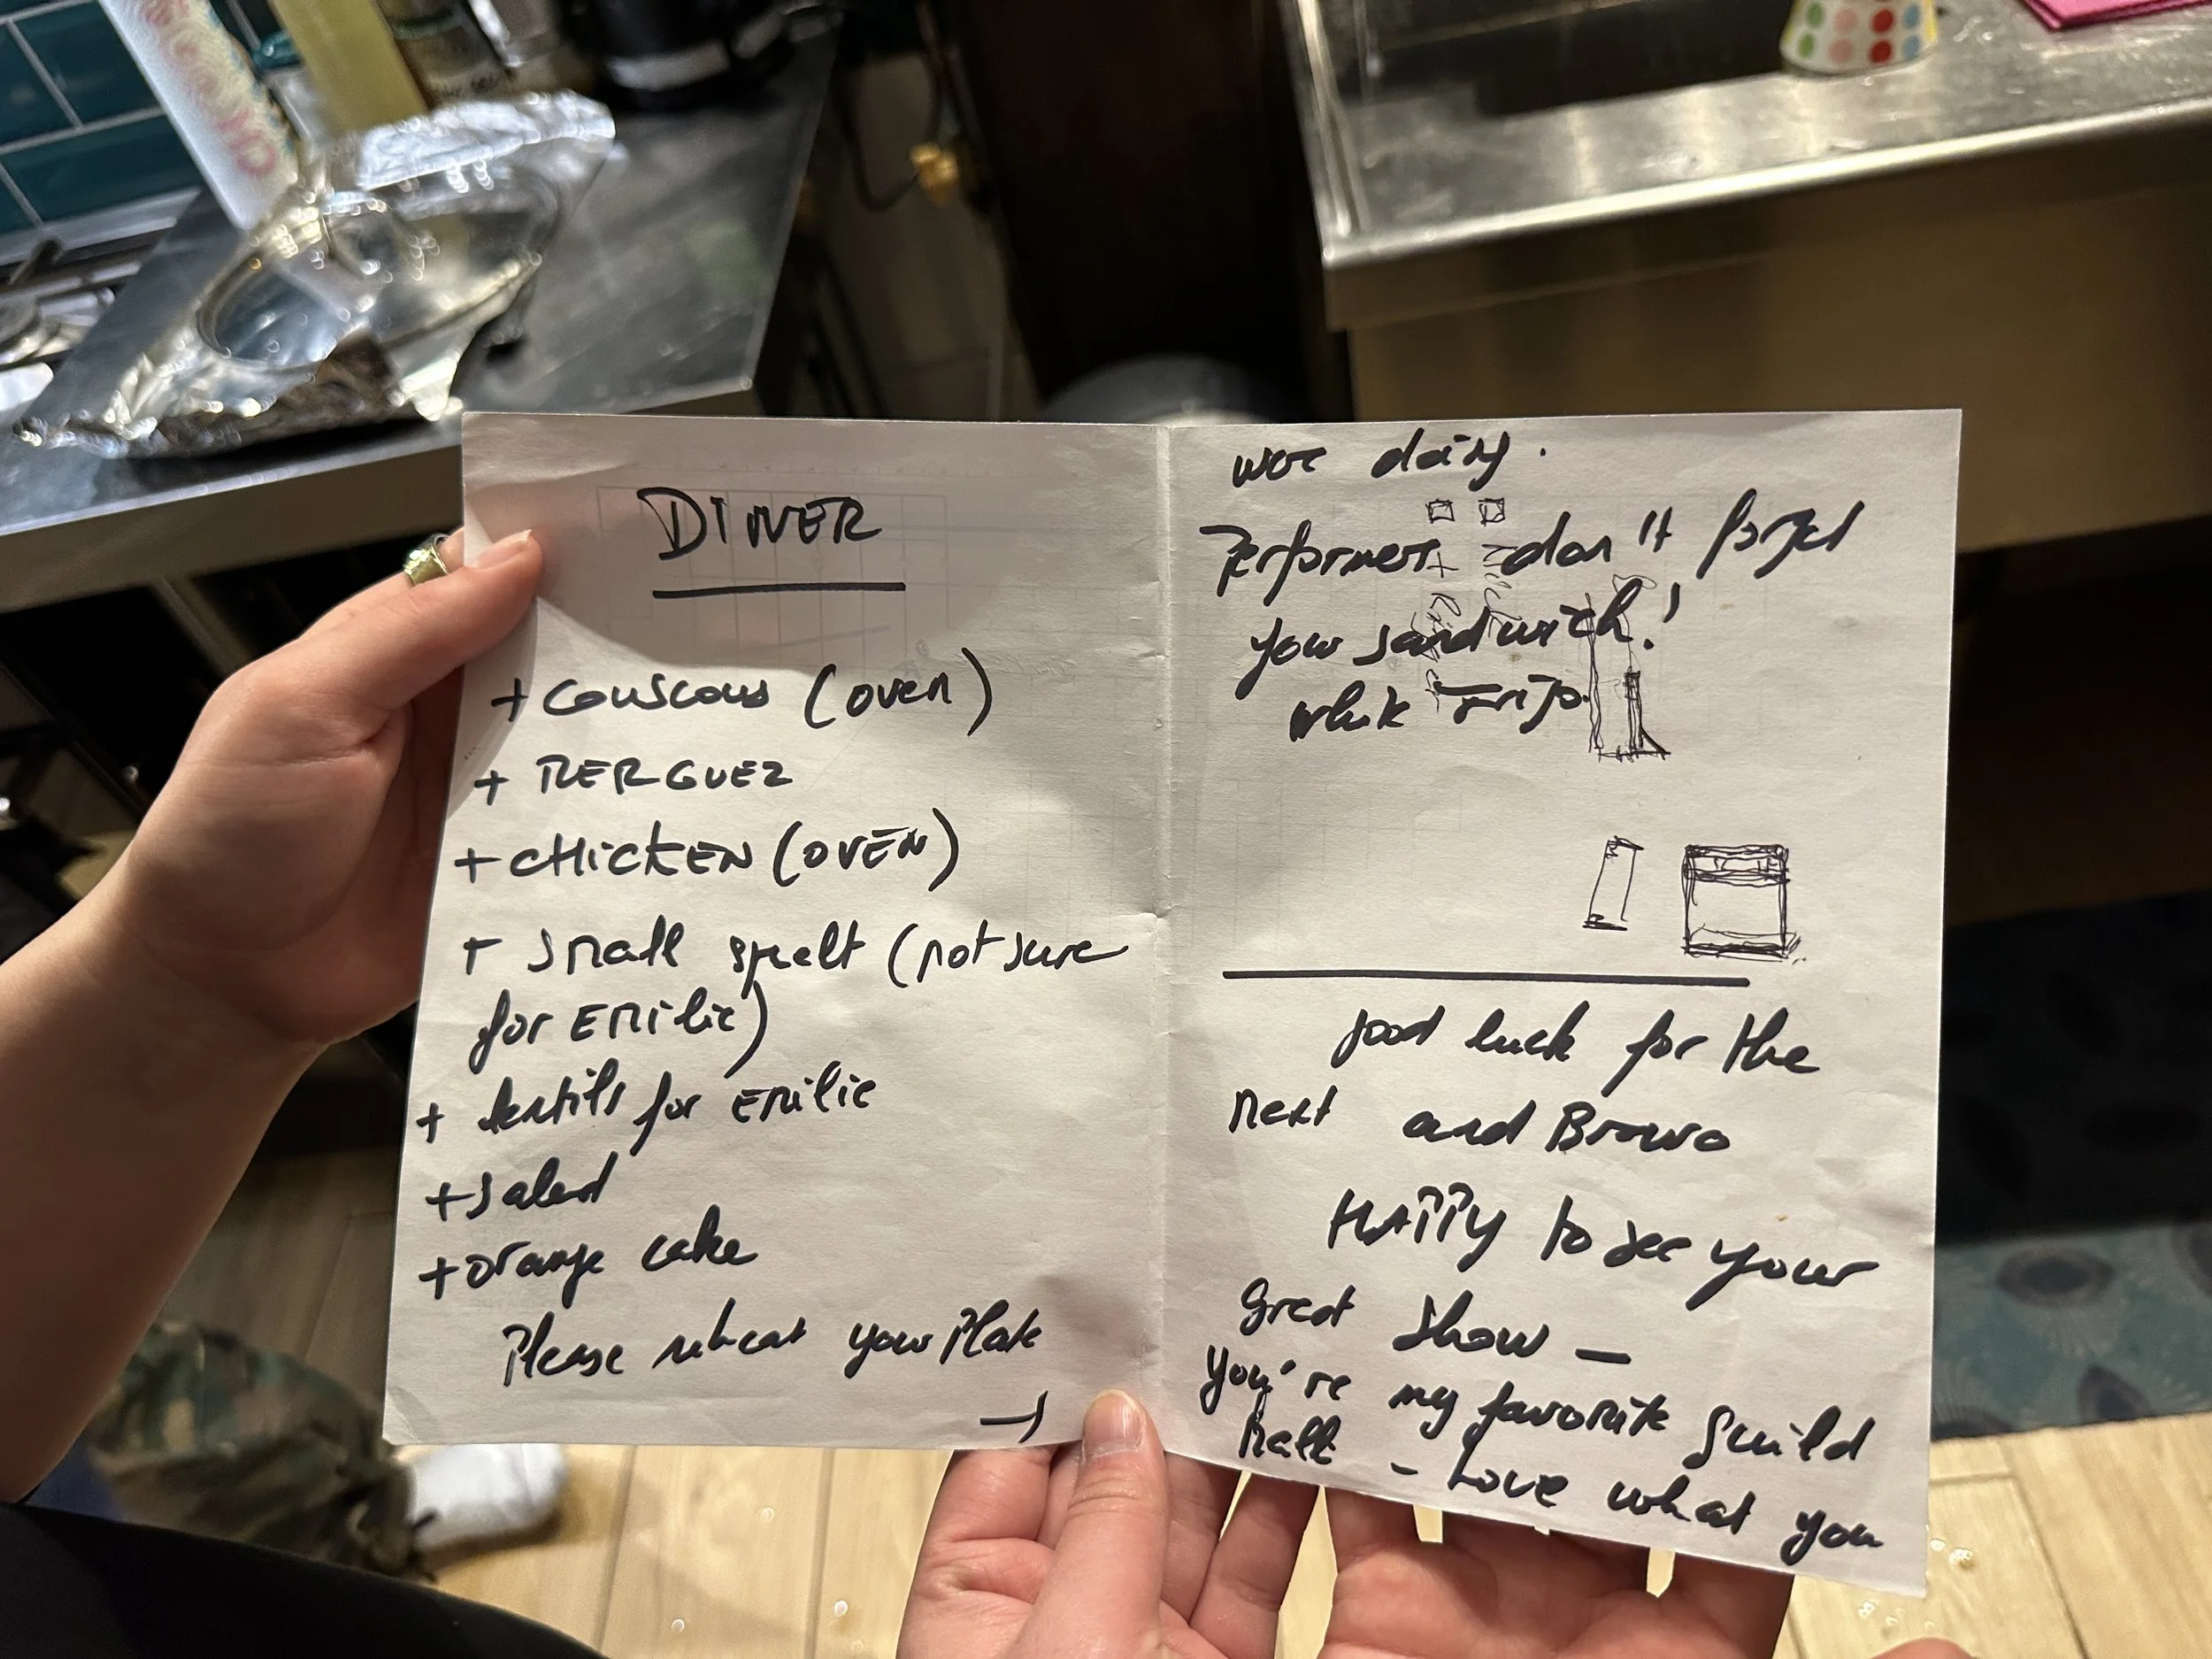 DINER
+ couscous (oven)
+ MERGUEZ
+ CHICKEN (OVEN)
+ small spelt (not sure
for Emilie)
+ lentils for Emilie
+ salad
+ orange cake
Please reheat your Plate
→
were doing.
Performers don't forget
your sandwich!
white Frigo.
good luck for the
next and Bravo
HAPPY to see your
great show –
You're my favorite Guild
Love what you